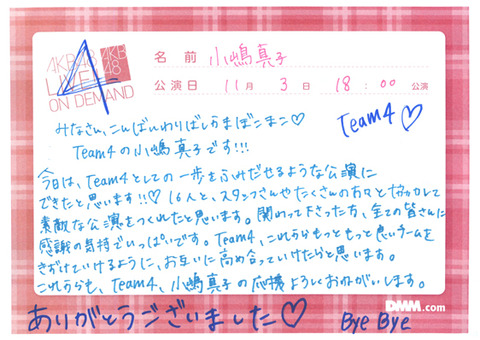 AKB48 AKB48
LIVE!!
ON DEMAND
4
名前 小嶋真子
公演日 11月3日 18:00 公演
Team4♡
みなさん、こんばんわりばしこまぼこまこ♡
Team4の小嶋真子です!!!
今日は、Team4としての一歩をふみだせるような公演に
できたと思います!!♡ 16人と、スタッフさんやたくさんの方々と協力して
素敵な公演をつくれたと思います。関わって下さった方、全ての皆さんに
感謝の気持でいっぱいです。Team4、これからもっともっと良いチームを
きずけていけるように、お互いに高め合っていけたらと思います。
これからも、Team4、小嶋真子の応援よろしくおねがいします。
ありがとうございました♡
Bye Bye
DMM.com